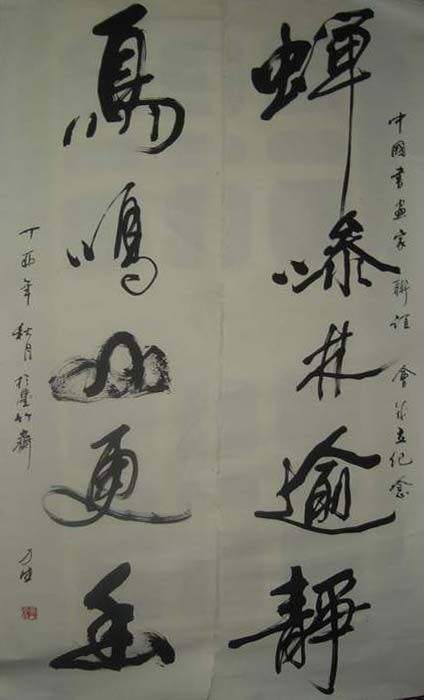 中國書畫家聯誼會成立纪念
蟬噪林逾靜
鳥鳴山更幽
丁酉年 秋月 於墨竹齋